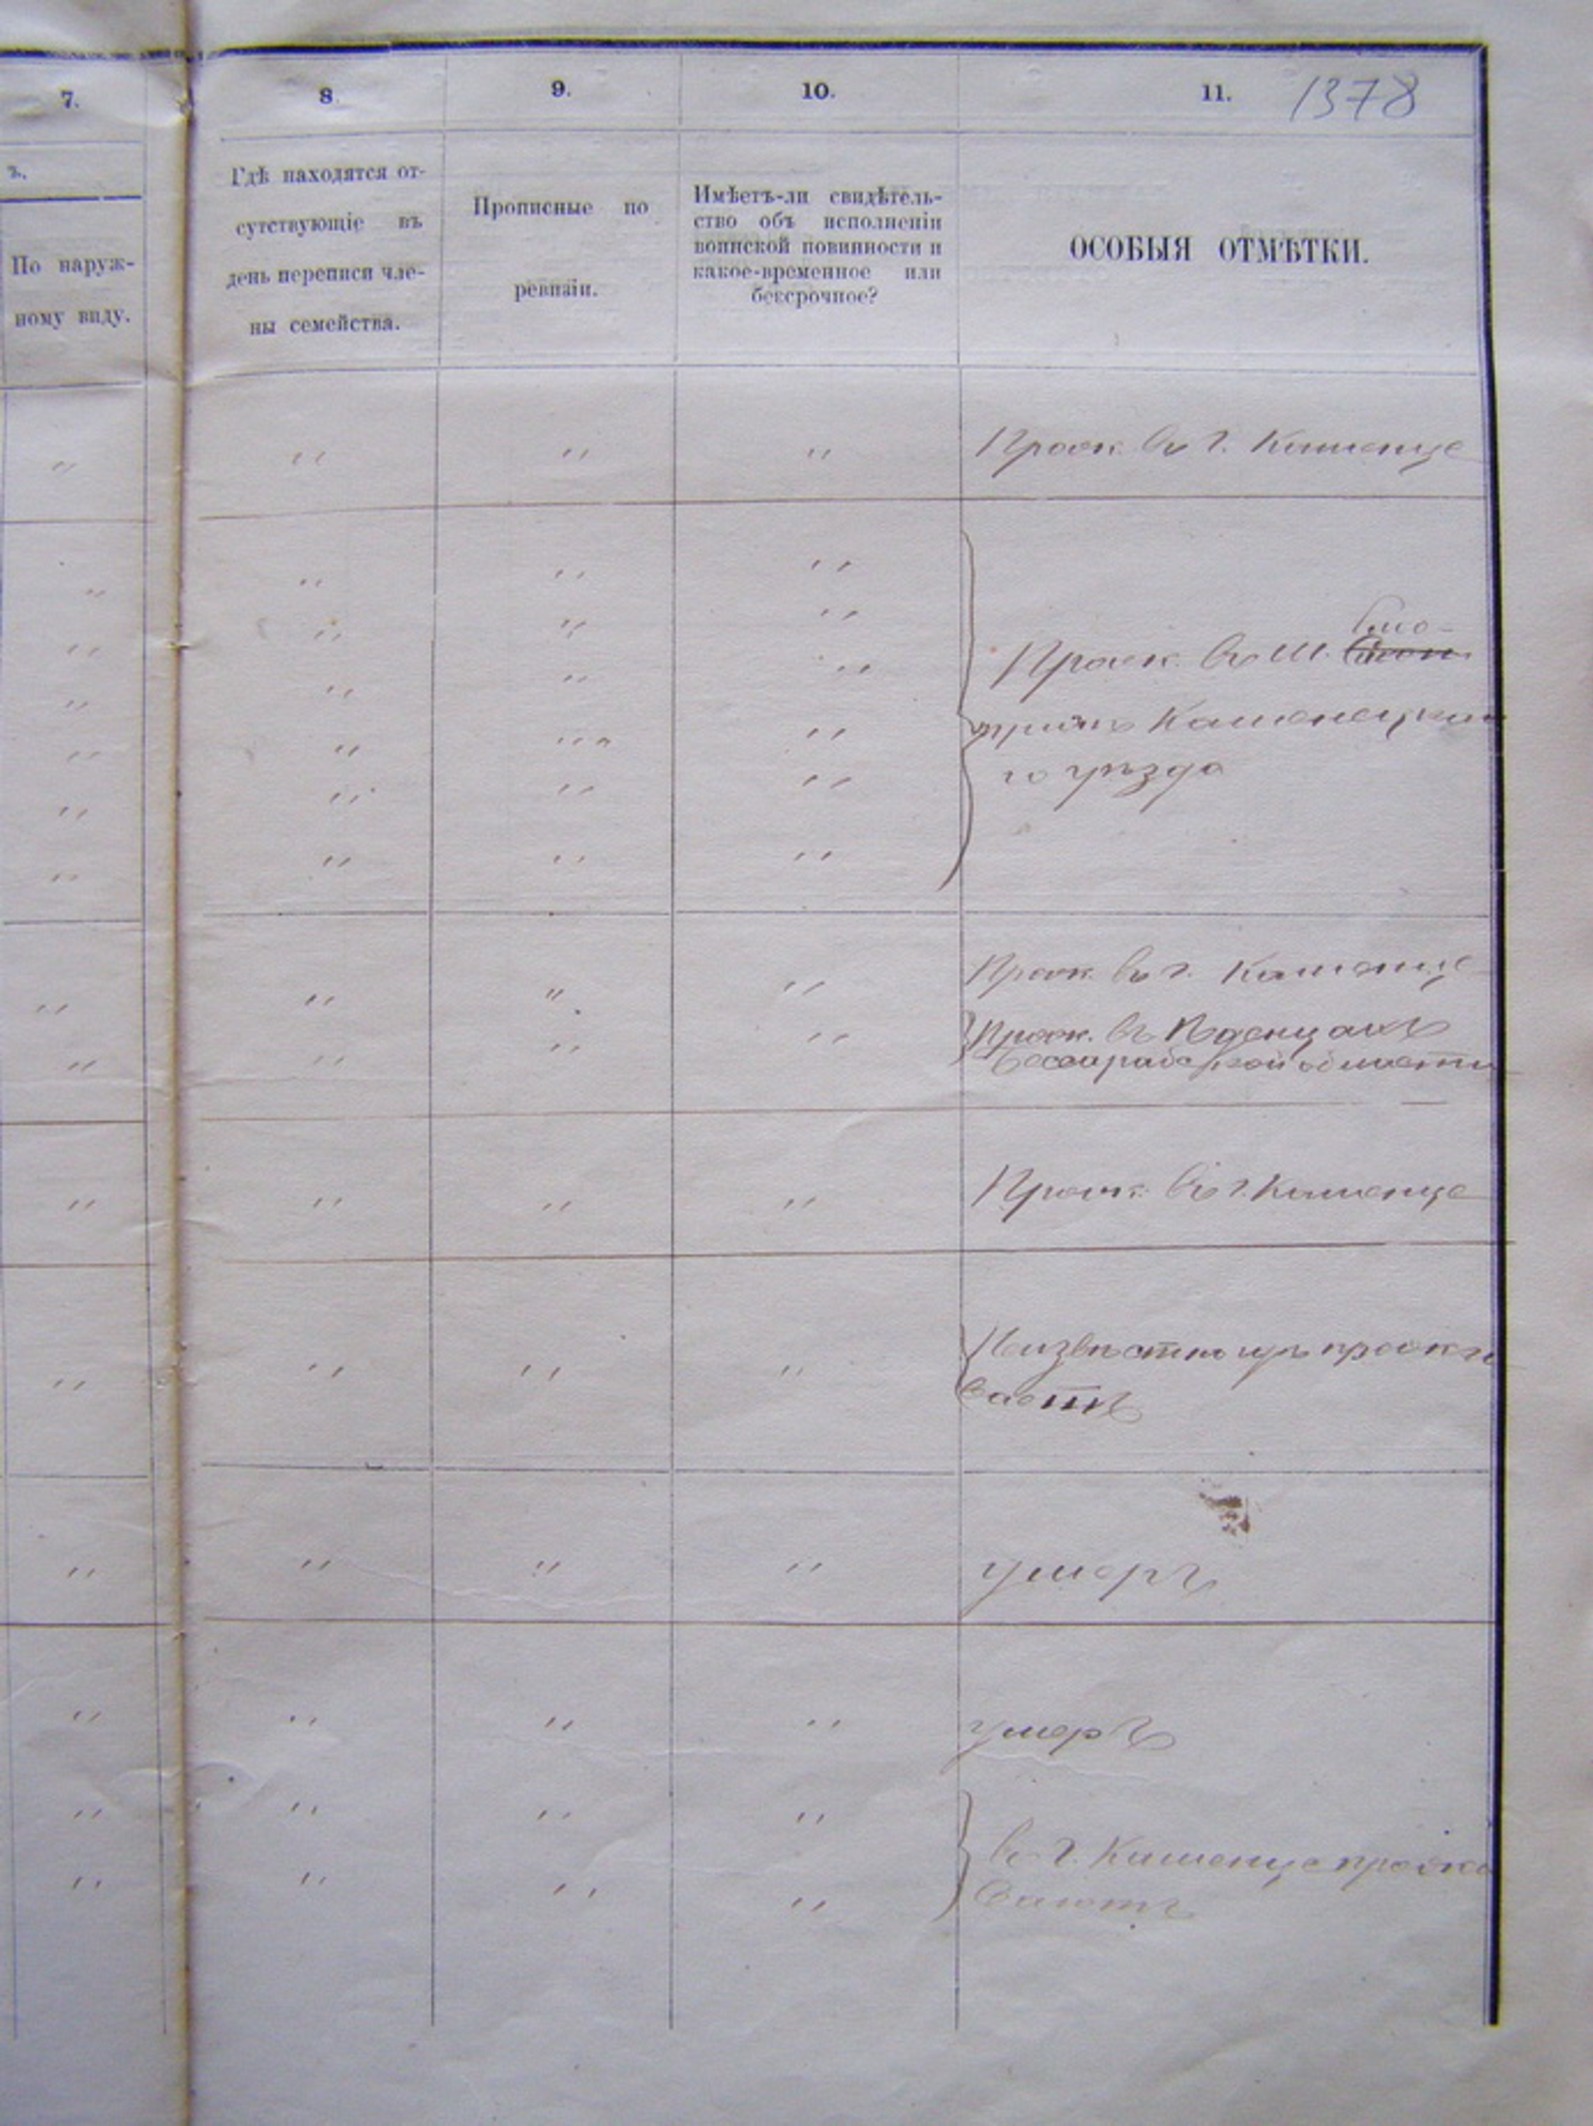 7. 8 9. 10. 11. 1378
ъ.
По наруж-
ному виду.
Гдѣ находятся от-
сутствующіе въ
день переписи чле-
ны семейства.
Прописные по
ревизіи.
Имѣетъ-ли свидѣтель-
ство объ исполненіи
воинской повинности и
какое-временное или
безсрочное?
ОСОБЫЯ ОТМѢТКИ.
" " " " Прож. въ г. Каменце
" " " "
" " " "
" " " "
" " " "
" " " "
" " " "
Прожи. въ м.
Каменецка
го уѣзда
" " " " Прож. въ г. Каменце
" " " " Прож. въ
Бессарабской области
" " " " Прож. въ г. Каменце
" " " " Неизвѣстно гдѣ прожи
ваетъ
" " " " умеръ
" " " " умеръ
" " " "
" " " "
въ г. Каменце прожи
ваютъ